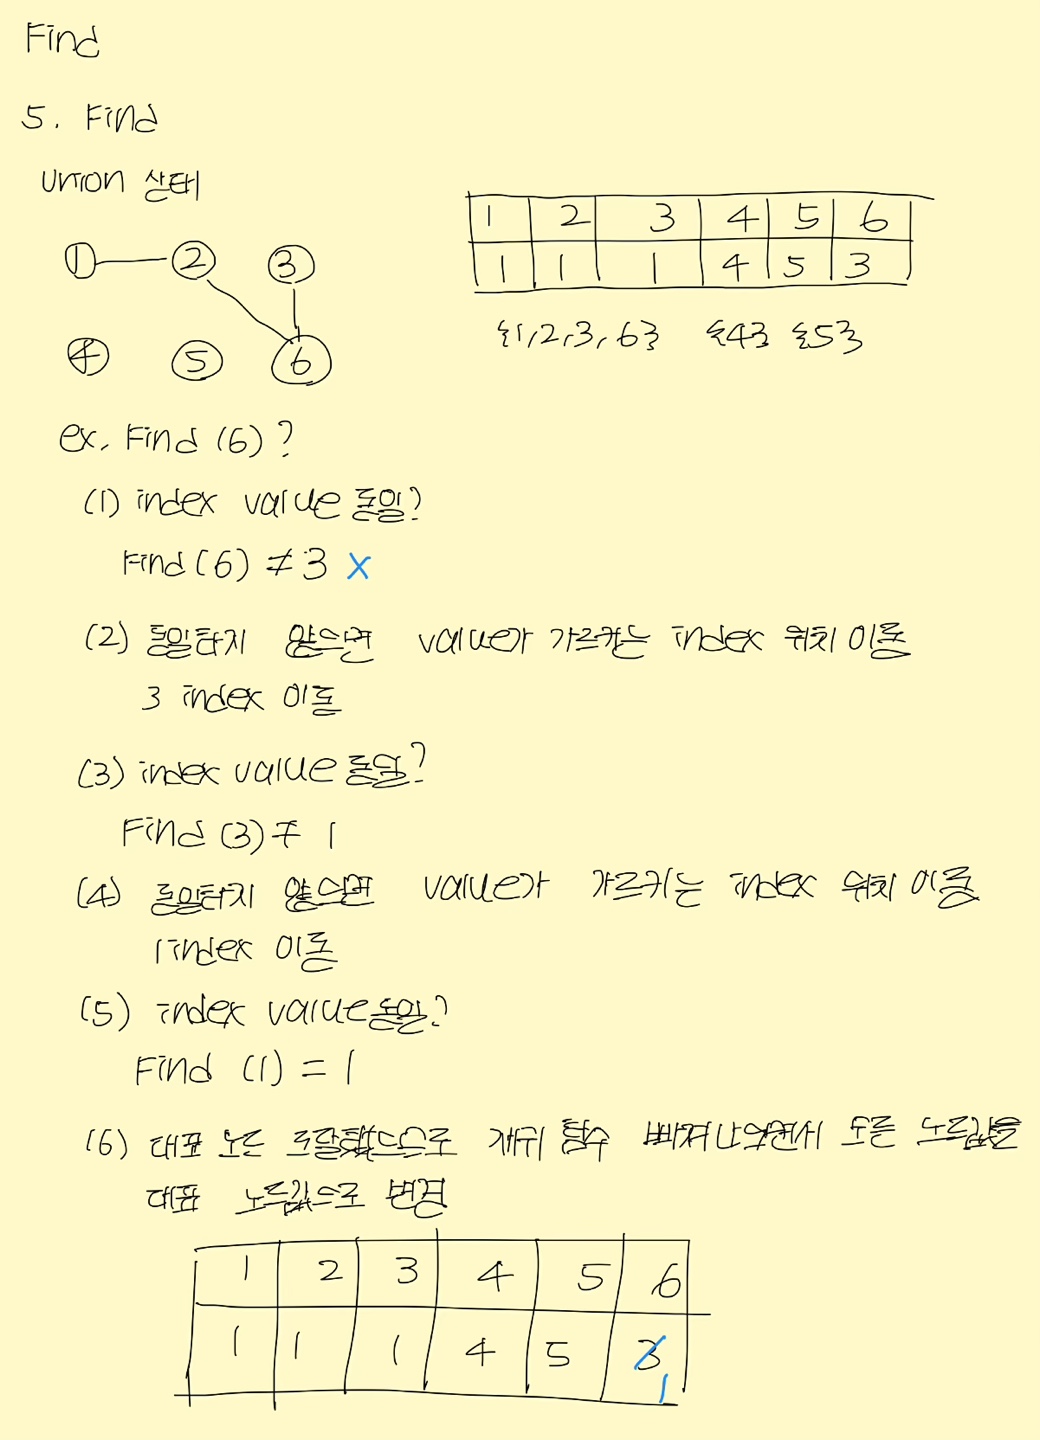 Find
5. Find
Union 상태
1 2 3 4 5 6
1 1 1 4 5 3
① ② ③
④ ⑤ ⑥
{1,2,3,6} {4} {5}
ex. Find (6)?
(1) index value 동일?
Find (6) ≠ 3 x
(2) 동일하지 않으면 value가 가르키는 index 위치 이동
3 index 이동
(3) index value 동일?
Find (3) ≠ 1
(4) 동일하지 않으면 value가 가르키는 index 위치 이동
1 index 이동
(5) index value 동일?
Find (1) = 1
(6) 대표 노드 도달했으므로 재귀 함수 빠져나오면서 모든 노드값을
대표 노드값으로 변경
1 2 3 4 5 6
1 1 1 4 5 3
1